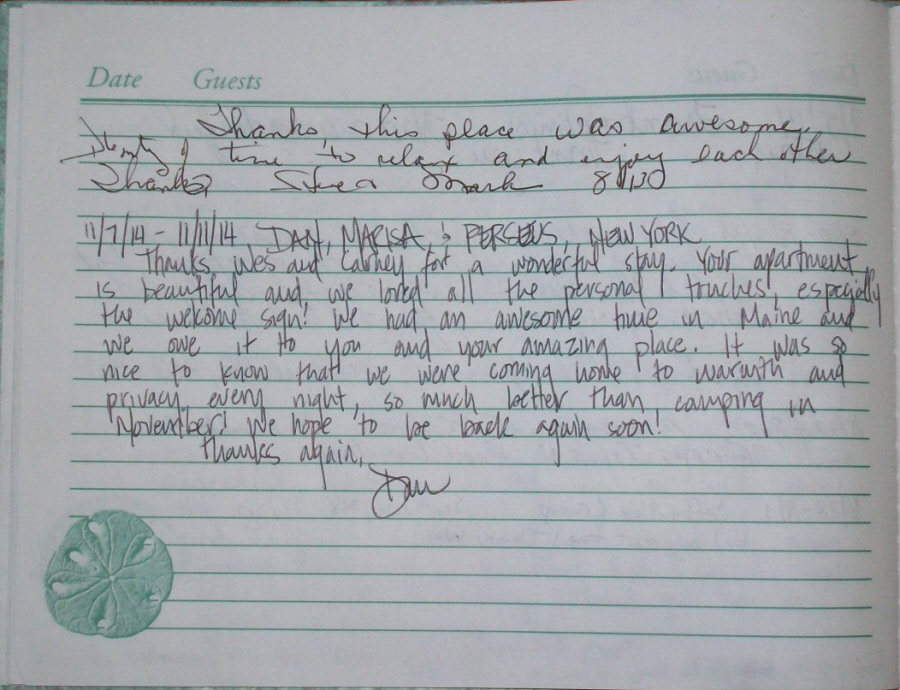 Date Guests
Thanks, this place was awesome,
Plenty of time to relax and enjoy each other
Thanks
11/7/14 - 11/11/14, DAN, MARISA, & PERSEUS, NEW YORK
Thanks Wes and for a wonderful stay. Your apartment
is beautiful and we loved all the personal truches, especially
the welcome sign! We had an awesome time in Maine and
we owe it to you and your amazing place. It was so
nice to know that we were coming home to warmth and
privacy every night, so much better than camping in
November! We hope to be back again soon!
Thanks again,
Dan